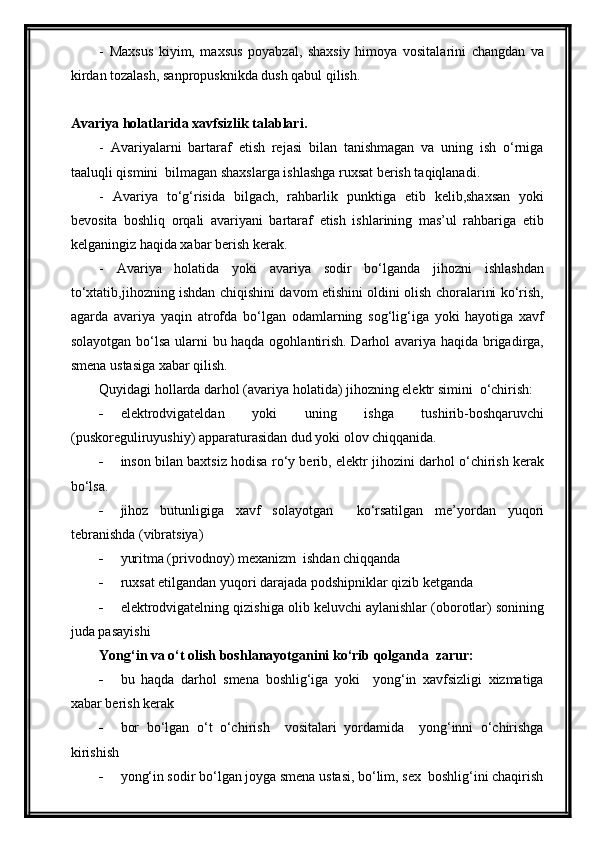 - Maxsus kiyim, maxsus poyabzal, shaxsiy himoya vositalarini changdan va
kirdan tozalash, sanpropusknikda dush qabul qilish.
Avariya holatlarida xavfsizlik talablari.
- Avariyalarni bartaraf etish rejasi bilan tanishmagan va uning ish o‘rniga
taaluqli qismini bilmagan shaxslarga ishlashga ruxsat berish taqiqlanadi.
- Avariya to‘g‘risida bilgach, rahbarlik punktiga etib kelib,shaxsan yoki
bevosita boshliq orqali avariyani bartaraf etish ishlarining mas’ul rahbariga etib
kelganingiz haqida xabar berish kerak.
- Avariya holatida yoki avariya sodir bo‘lganda jihozni ishlashdan
to‘xtatib,jihozning ishdan chiqishini davom etishini oldini olish choralarini ko‘rish,
agarda avariya yaqin atrofda bo‘lgan odamlarning sog‘lig‘iga yoki hayotiga xavf
solayotgan bo‘lsa ularni bu haqda ogohlantirish. Darhol avariya haqida brigadirga,
smena ustasiga xabar qilish.
Quyidagi hollarda darhol (avariya holatida) jihozning elektr simini o‘chirish:
- elektrodvigateldan yoki uning ishga tushirib-boshqaruvchi
(puskoreguliruyushiy) apparaturasidan dud yoki olov chiqqanida.
- inson bilan baxtsiz hodisa ro‘y berib, elektr jihozini darhol o‘chirish kerak
bo‘lsa.
- jihoz butunligiga xavf solayotgan ko‘rsatilgan me’yordan yuqori
tebranishda (vibratsiya)
- yuritma (privodnoy) mexanizm ishdan chiqqanda
- ruxsat etilgandan yuqori darajada podshipniklar qizib ketganda
- elektrodvigatelning qizishiga olib keluvchi aylanishlar (oborotlar) sonining
juda pasayishi
Yong‘in va o‘t olish boshlanayotganini ko‘rib qolganda zarur:
- bu haqda darhol smena boshlig‘iga yoki yong‘in xavfsizligi xizmatiga
xabar berish kerak
- bor bo‘lgan o‘t o‘chirish vositalari yordamida yong‘inni o‘chirishga
kirishish
- yong‘in sodir bo‘lgan joyga smena ustasi, bo‘lim, sex boshlig‘ini chaqirish